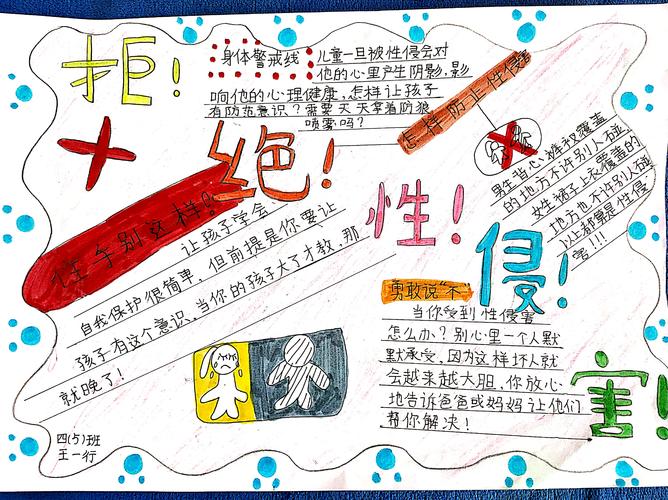 拒！
绝！
性！
侵！
害！
身体警戒线
儿童一旦被性侵会对
他的心里产生阴影，影
响他的心理健康，怎样让孩子
有防范意识？需要天天拿着防狼
喷雾吗？
怎样防止性侵害
男生背心裤衩覆盖
的地方不许别人碰
女生裙子上衣覆盖的
地方也不许别人碰
以上都算是性侵
害！！！
住手别这样？
让孩子学会
自我保护很简单，但前提是你要让
孩子有这个意识。当你的孩子大了才教，那
就晚了！
勇敢说“不”
当你受到性侵害
怎么办？别心里一个人默
默承受，因为这样坏人就
会越来越大胆，你放心
地告诉爸爸或妈妈让他们
帮你解决！
四(5)班
王一行